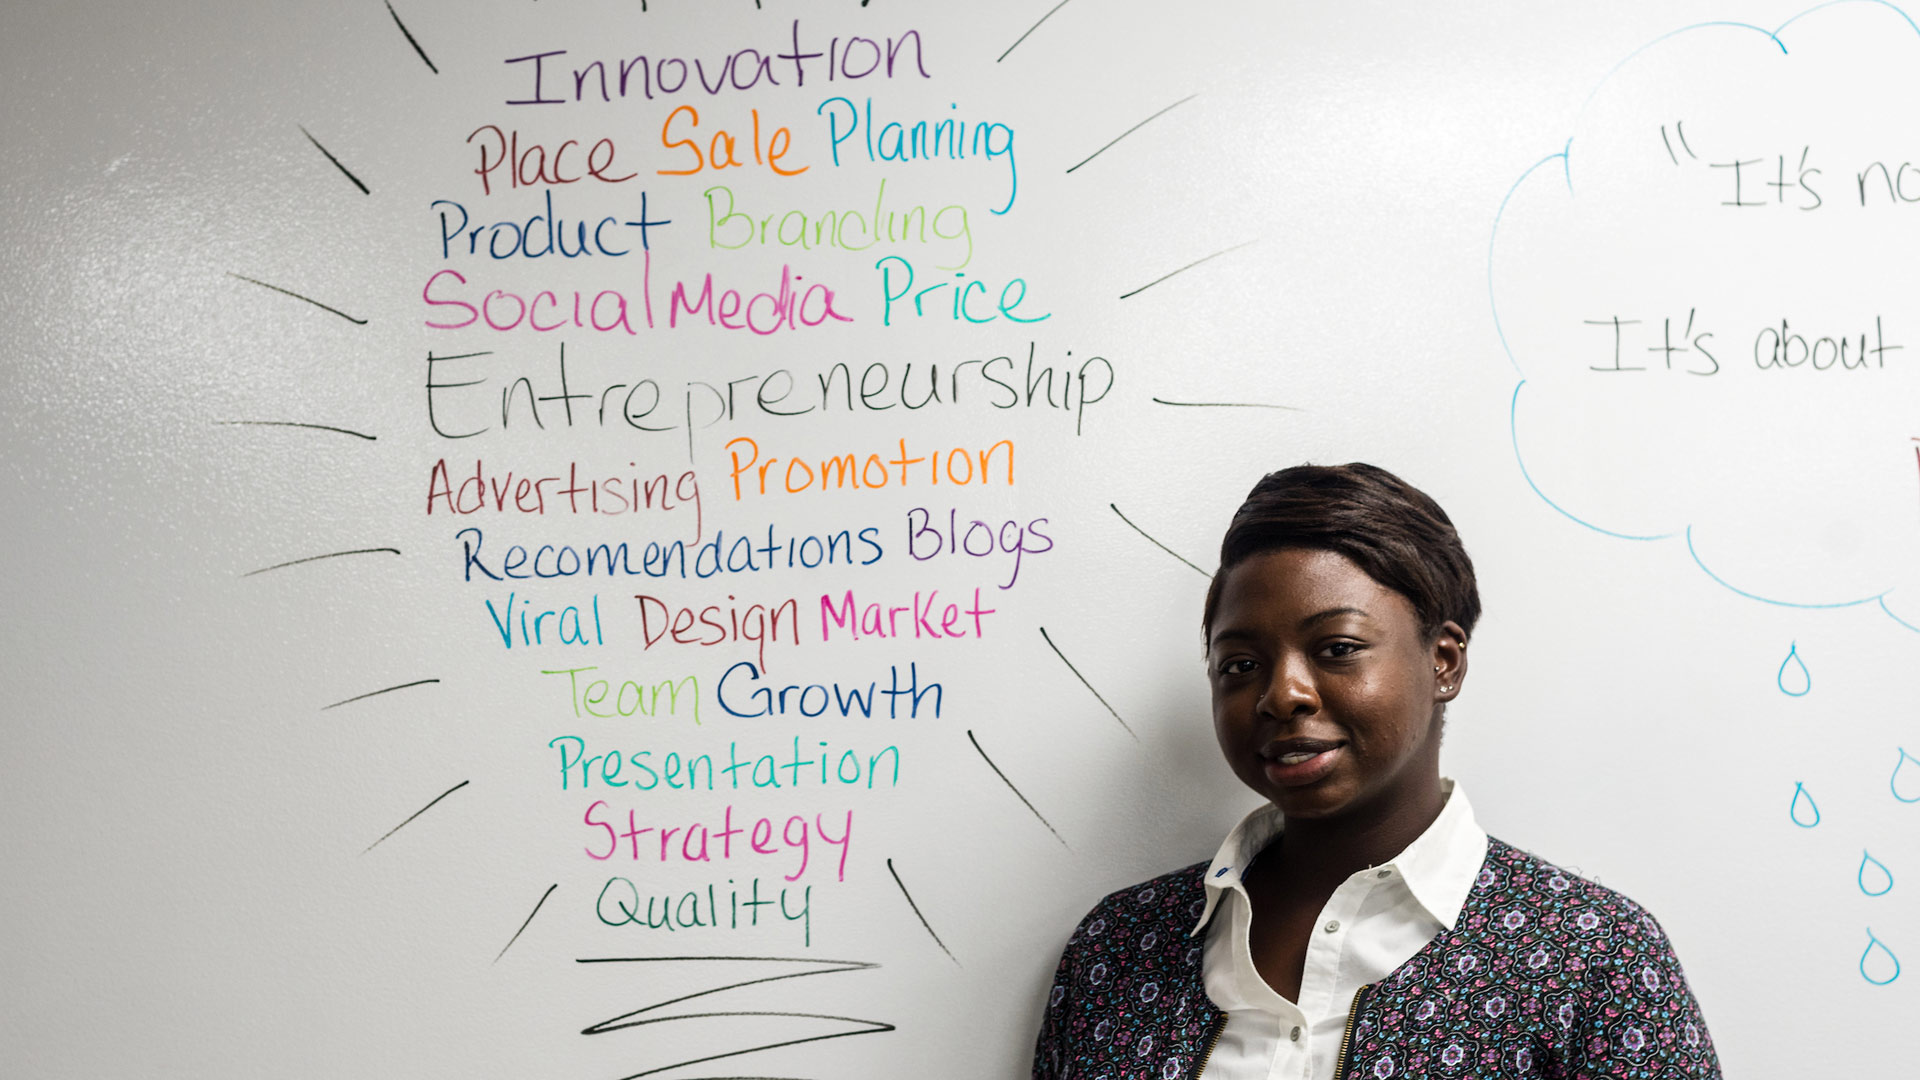 Innovation
Place Sale Planning
Product Branding
Social Media Price
Entrepreneurship
Advertising Promotion
Recomendations Blogs
Viral Design Market
Team Growth
Presentation
Strategy
Quality
"It's
It's about